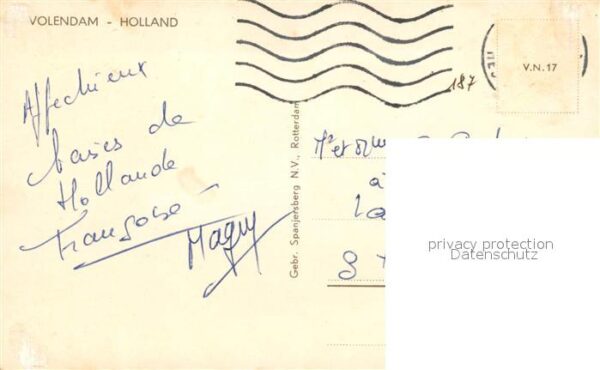 VOLENDAM - HOLLAND
V.N. 17
187
Affectueux
baisers de
Hollande
Françoise
Maguy
Gebr. Spanjersberg N.V., Rotterdam
Mr et Mme
à
La
privacy protection
Datenschutz